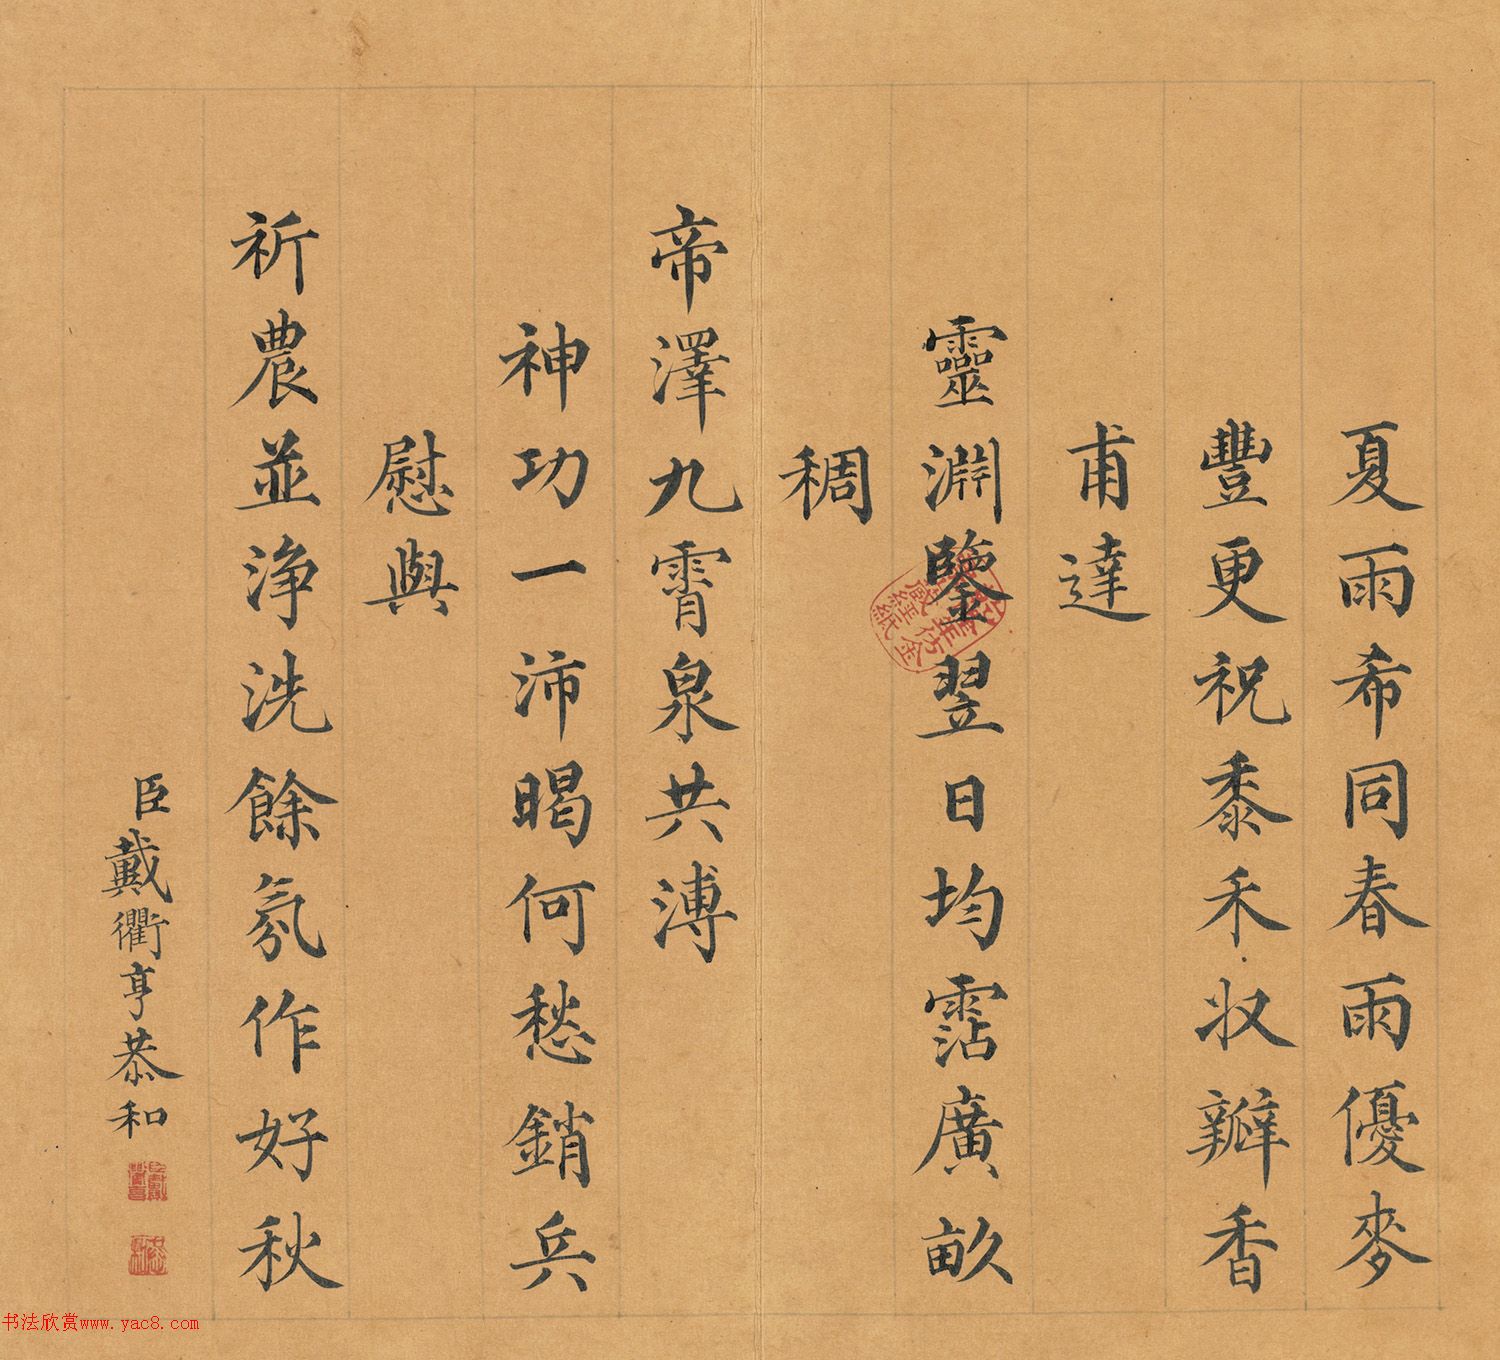 夏雨希同春雨優麥
豐更祝黍禾收瓣香
甫達
靈淵鑒翌日均霑廣畝
稠
帝澤九霄泉共溥
神功一沛暍何愁銷兵
慰與
祈農並淨洗餘氛作好秋
臣戴衢亨恭和
乾隆年仿金
粟山藏經紙
书法欣赏www.yac8.com